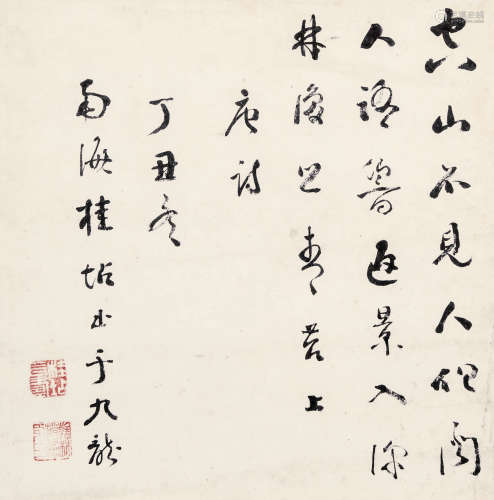 空山不見人但聞
人語響返景入深
林復照青苔上
唐詩
丁丑冬
南海桂坫書于九龍